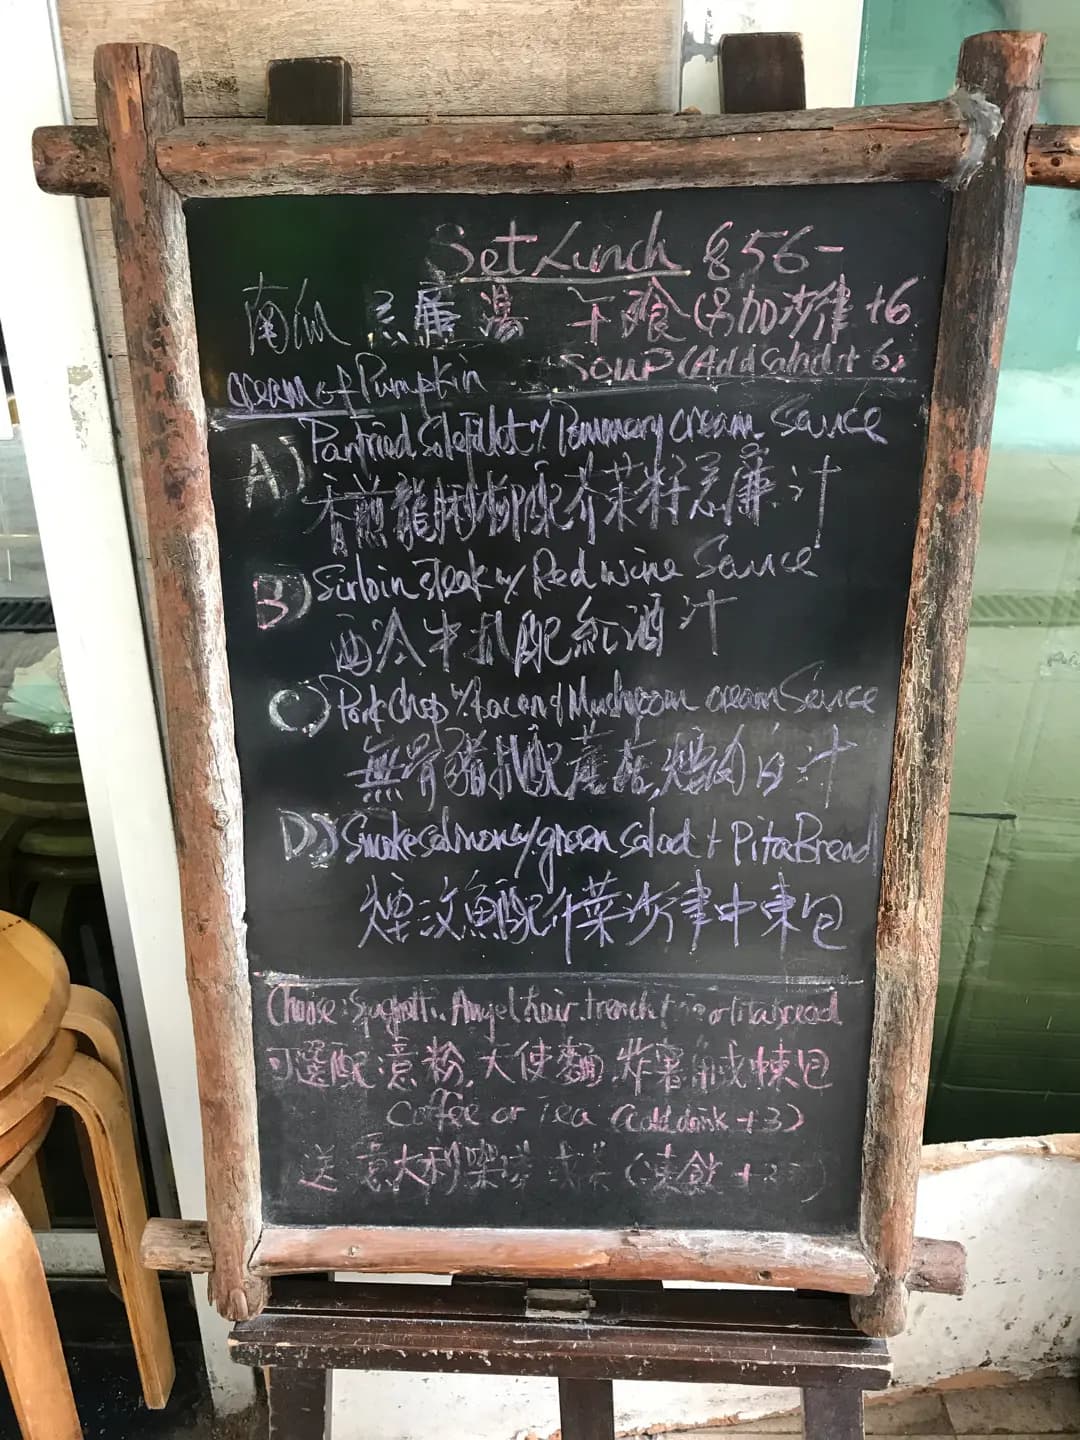 Set Lunch $56-
南瓜忌廉湯 午餐(另加沙律+6
cream of Pumpkin Soup (Add salad + 6)
A) Panfried sole fillet w/ Pommery cream Sauce
香煎龍脷柳配芥菜籽忌廉汁
B) Sirloin steak w/ Red wine Sauce
西冷牛扒配紅酒汁
C) Pork chop w/ Bacon & Mushroom cream Sauce
無骨豬扒配蘑菇,煙肉白汁
D) Smoke salmon w/ green salad + Pita Bread
煙汶魚配什菜沙律中東包
Choose: Spaghetti, Angel hair, french or Pita bread
可選配:意粉,天使麵,炸薯 或 包
Coffee or Tea (cold drink + 3)
送 意大利 或茶 (凍飲 + 3)